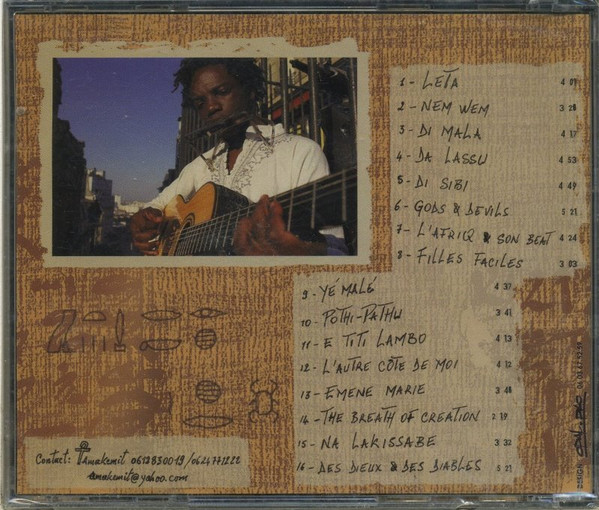 1 - LETA 4 09
2 - NEM WEM 3 28
3 - DI MALA 4 17
4 - DA LASSU 4 53
5 - DI SIBI 4 49
6 - GODS & DEVILS 5 21
7 - L'AFRIQ & SON BEAT 4 24
8 - FILLES FACILES 3 03
9 - YÉ MALÉ 4 37
10 - POTHI-PATHU 3 41
11 - E TITI LAMBO 4 13
12 - L'AUTRE CÔTE DE MOI 4 12
13 - EMENE MARIE 3 48
14 - THE BREATH OF CREATION 2 19
15 - NA LAKISSABE 3 32
16 - DES DIEUX & DES DIABLES 5 21
Contact: Amakemit 0613830019/0624771222
amakemit@yahoo.com
DESIGN